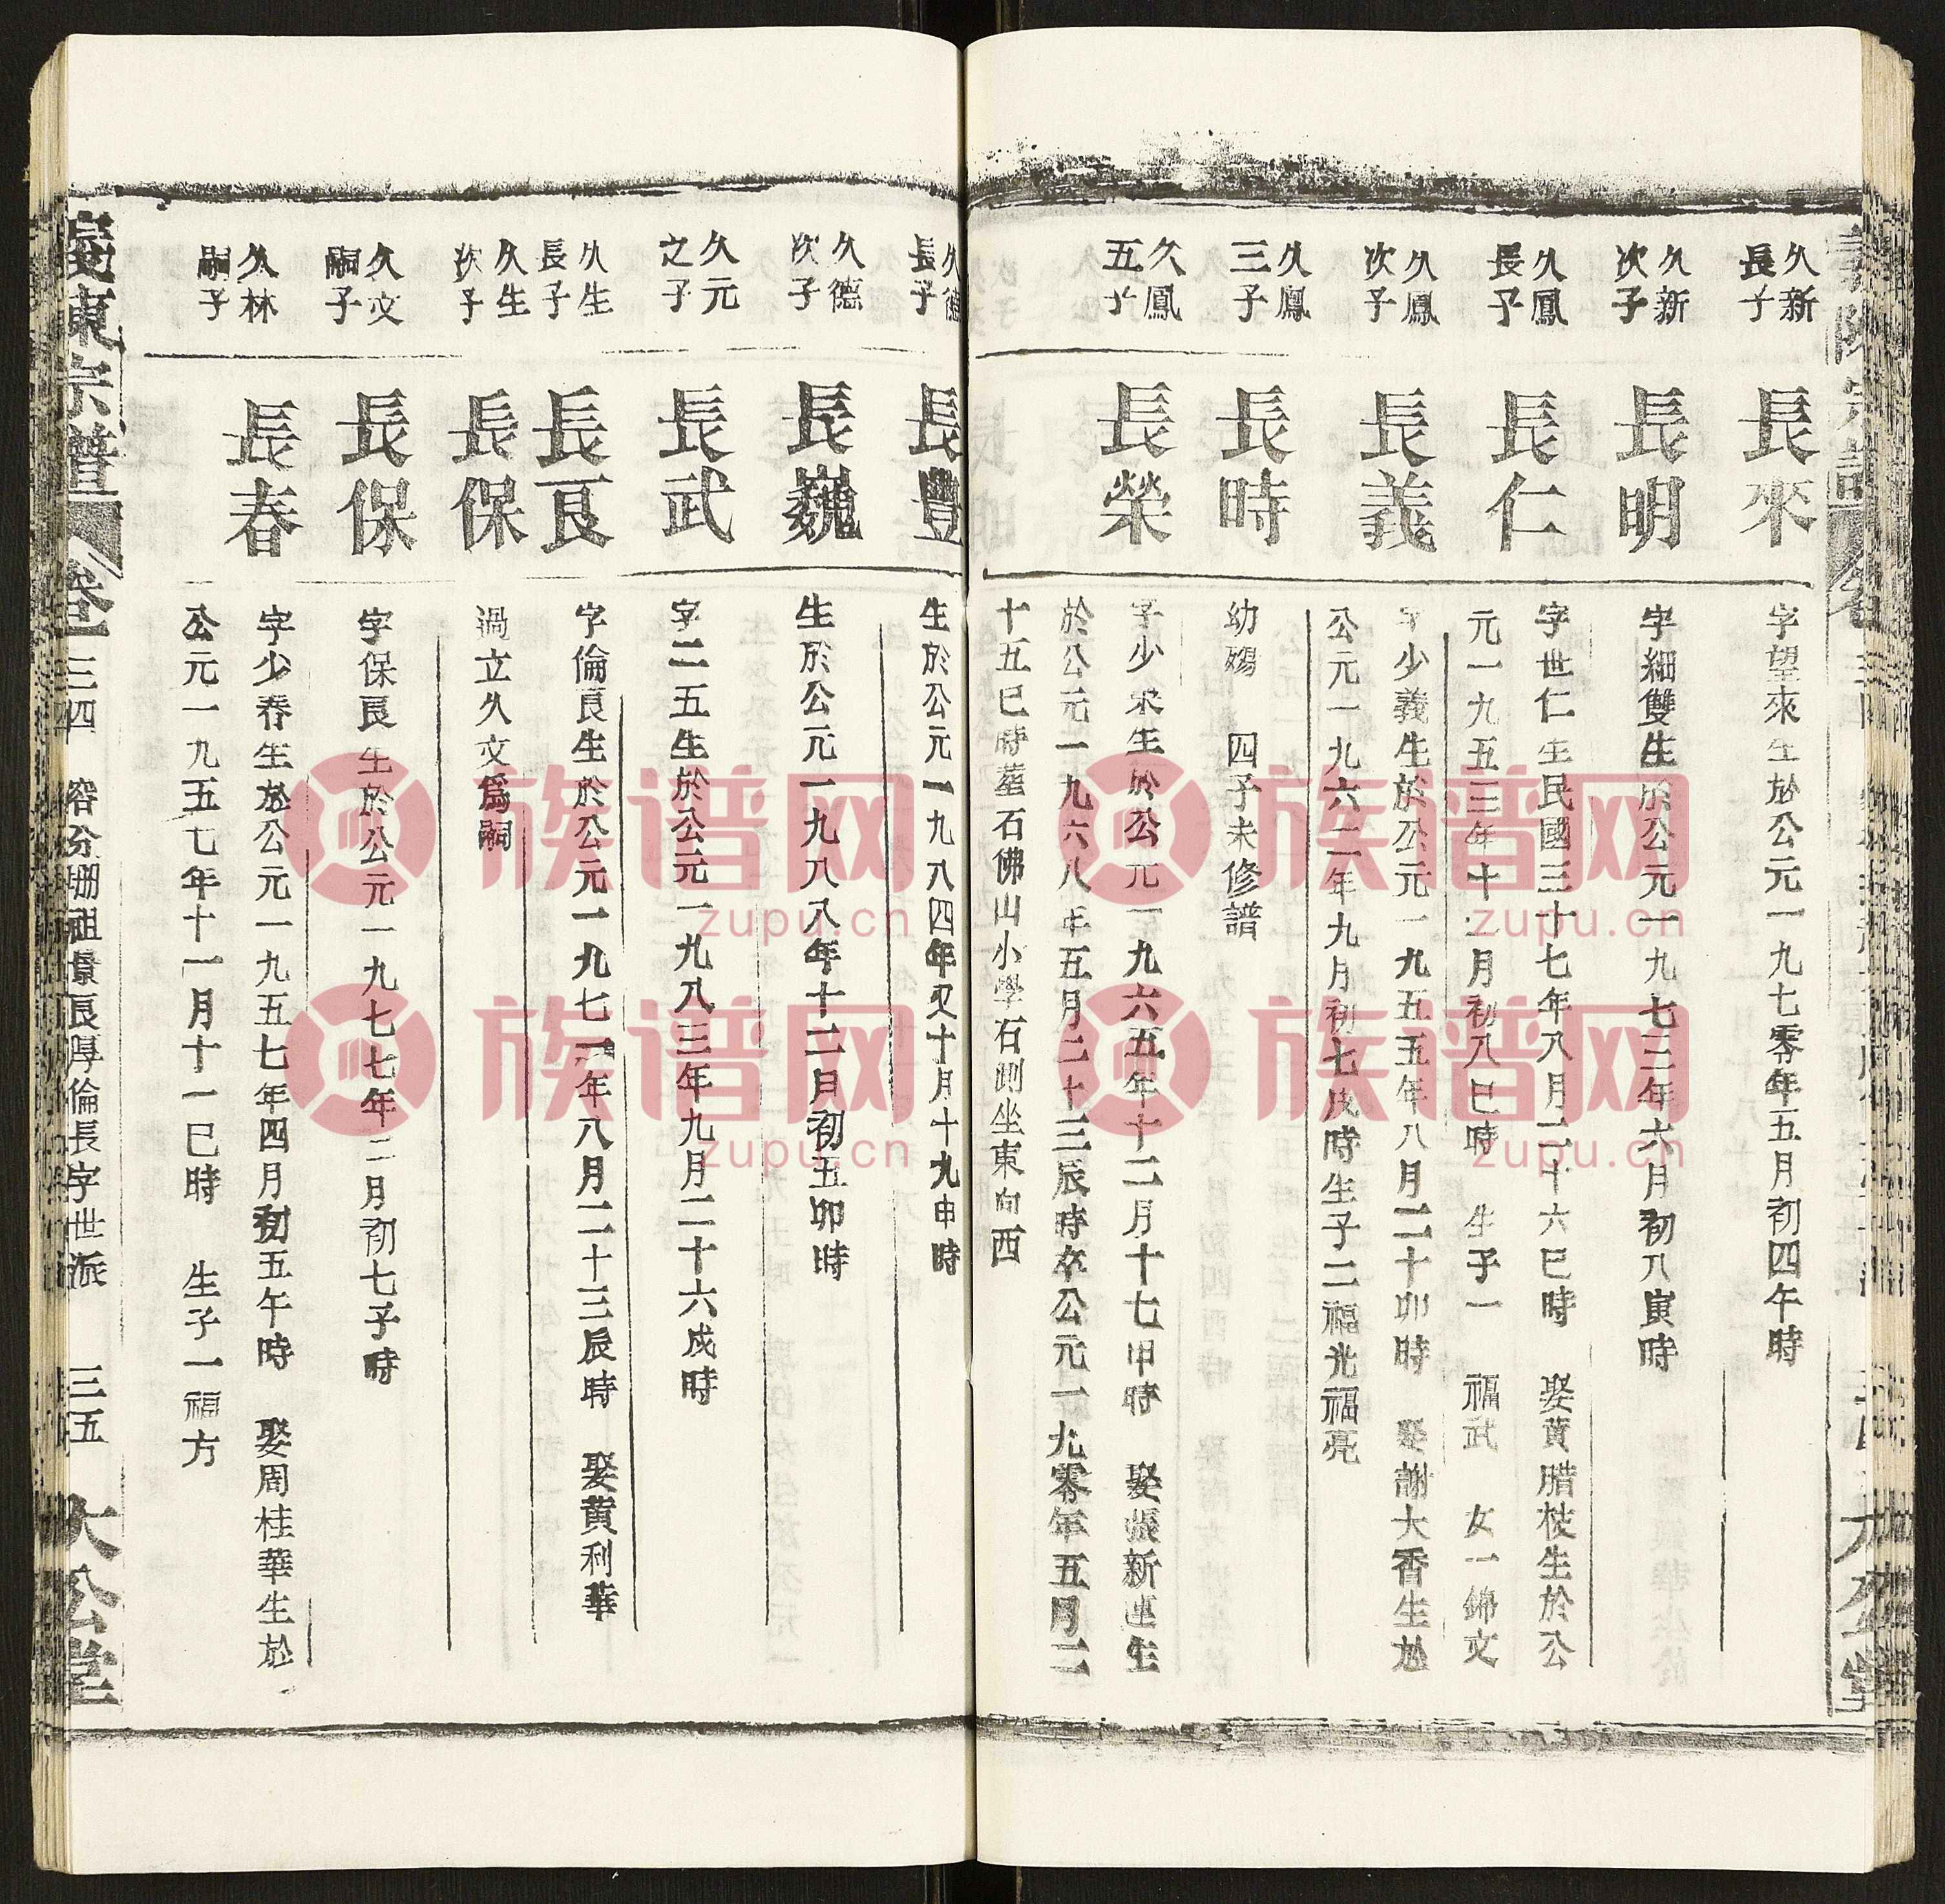 久新
長子
長來
字望來生於公元一九七零年五月初四午時
久新
次子
長明
字細雙生於公元一九七三年六月初八寅時
久鳳
長子
長仁
字世仁生民國三十七年八月二十六巳時 娶黃腊枝生於公
元一九五三年十二月初八巳時 生子一 福武 女一錦文
久鳳
次子
長義
字少義生於公元一九五五年八月二十卯時 娶謝大香生於
公元一九六二年九月初七戌時生子二福光福亮
久鳳
三子
長時
幼殤 四子未修譜
久鳳
五子
長榮
字少榮生於公元一九六五年十二月十七申時 娶張新連生
於公元一九六八年五月二十三辰時卒公元一九零年五月二
十五巳時墓石佛山小學右側坐東向西
久德
長子
長豐
生於公元一九八四年又十月十九申時
久德
次子
長巍
生於公元一九八八年十二月初五卯時
久元
之子
長武
字二五生於公元一九八三年九月二十六戌時
久生
長子
長良
字倫良生於公元一九七一年八月二十三辰時 娶黃利華
久生
次子
長保
過立久文爲嗣
久文
嗣子
長保
字保良生於公元一九七七年二月初七子時
久林
嗣子
長春
字少春生於公元一九五七年四月初五午時 娶周桂華生於
公元一九五七年十一月十一巳時 生子一福方
東宗譜
三四 容分珊祖景良厚倫長字世派 三五 大公堂
族谱网
zupu.cn
族谱网
zupu.cn
族谱网
zupu.cn
族谱网
zupu.cn